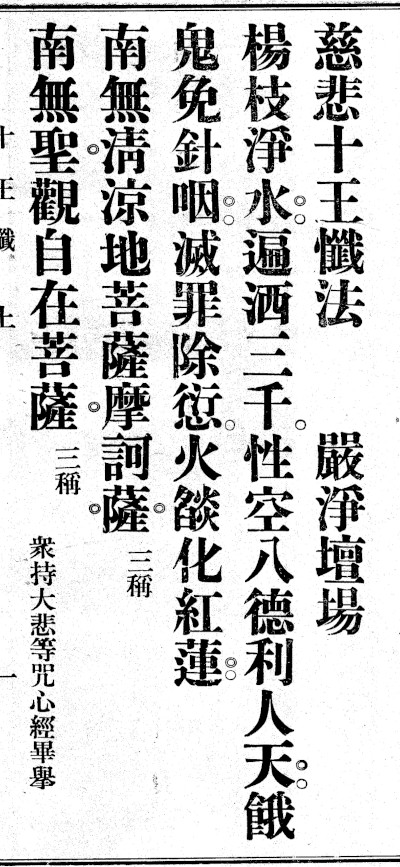 慈悲十王懺法 嚴淨壇場
楊枝淨水遍洒三千性空八德利人天餓
鬼免針咽滅罪除愆火燄化紅蓮
南無清涼地菩薩摩訶薩 三稱
南無聖觀自在菩薩 三稱 衆持大悲等咒心經畢舉
十王懺 上 一